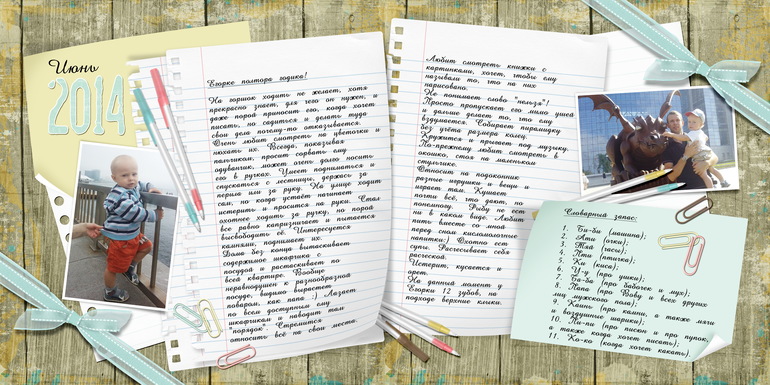 Июнь
2014
Егорке полтора годика!
На горшок ходить не желает, хотя
прекрасно знает, для чего он нужен, и
даже порой приносит его, когда хочет
писать, но садиться и делать туда
свои дела почему-то отказывается.
Очень любит смотреть на цветочки и
нюхать их. Всегда, показывая
пальчиком, просит сорвать ему
одуванчик, может очень долго носить
его в ручках. Умеет подниматься и
спускаться с лестницы, держась за
перила или за руку. На улице ходит
сам, но когда устаёт начинает
истерить и просится на руки. Стал
охотнее ходить за ручку, но порой
все равно капризничает и пытается
высвободить её. Интересуется
камнями, поднимает их.
Дома без конца вытаскивает
содержимое шкафчика с
посудой и растаскивает по
всей квартире. Вообще
неравнодушен к разнообразной
посуде, видимо вырастет
поваром, как папа :) Лазает
по всем доступным ему
шкафчикам и наводит там
"порядок". Стремится
относить всё на свои места.
Любит смотреть книжки с
картинками, хочет, чтобы ему
называли то, что на них
нарисовано.
Не понимает слово "нельзя"!
Просто пропускает его мимо ушей
и дальше делает то, что ему
вздумается. Собирает пирамидку
без учёта размера колец.
Кружится и прыгает под музыку.
По-прежнему любит смотреть в
окошко, стоя на маленьком
стульчике.
Относит на подоконник
разные игрушки и вещи и
играет там. Кушает
почти всё, что дают, но
понемногу. Рыбу не ест
ни в каком виде. Любит
пить вместе со мной
перед сном кисломолочные
напитки:) Охотно ест
супы. Расчесывает себя
расческой.
Истерит, кусается и
орет.
На данный момент у
Егорки 12 зубов, на
подходе верхние клыки.
Словарный запас:
1. Би-би (машина);
2. Ати (очки);
3. Тя (часы);
4. Пти (птичка);
5. Ки (киса);
6. У-у (про ушки);
7. Ба-ба (про бабочек и мух);
8. Папа (про Вову и всех других
лиц мужского пола);
9. Камь (про камни, а также мячи
и воздушные шарики);
10. Пи-пи (про писюн и про пупок,
а также когда хочет писать);
11. Ко-ко (когда хочет какать).